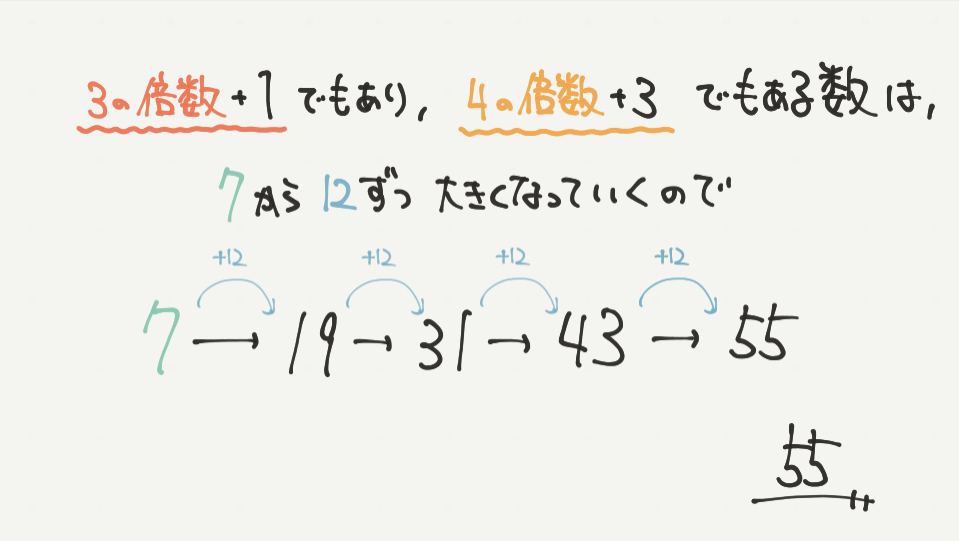 3の倍数+1でもあり, 4の倍数+3 でもある数は,
7から12ずつ大きくなっていくので
+12 +12 +12 +12
7→19→31→43→55
55